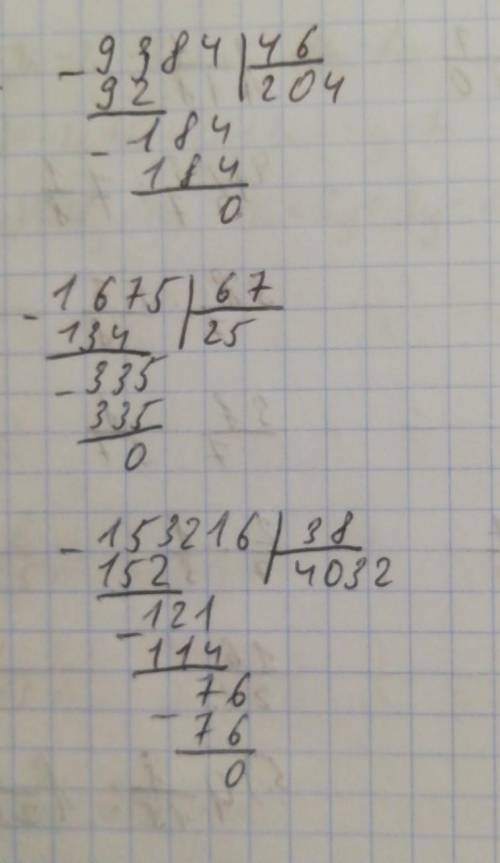 - 9384 | 46
92 204
- 184
184
0
- 1675 | 67
134 25
- 335
335
0
- 153216 | 38
152 4032
- 121
114
76
- 76
0